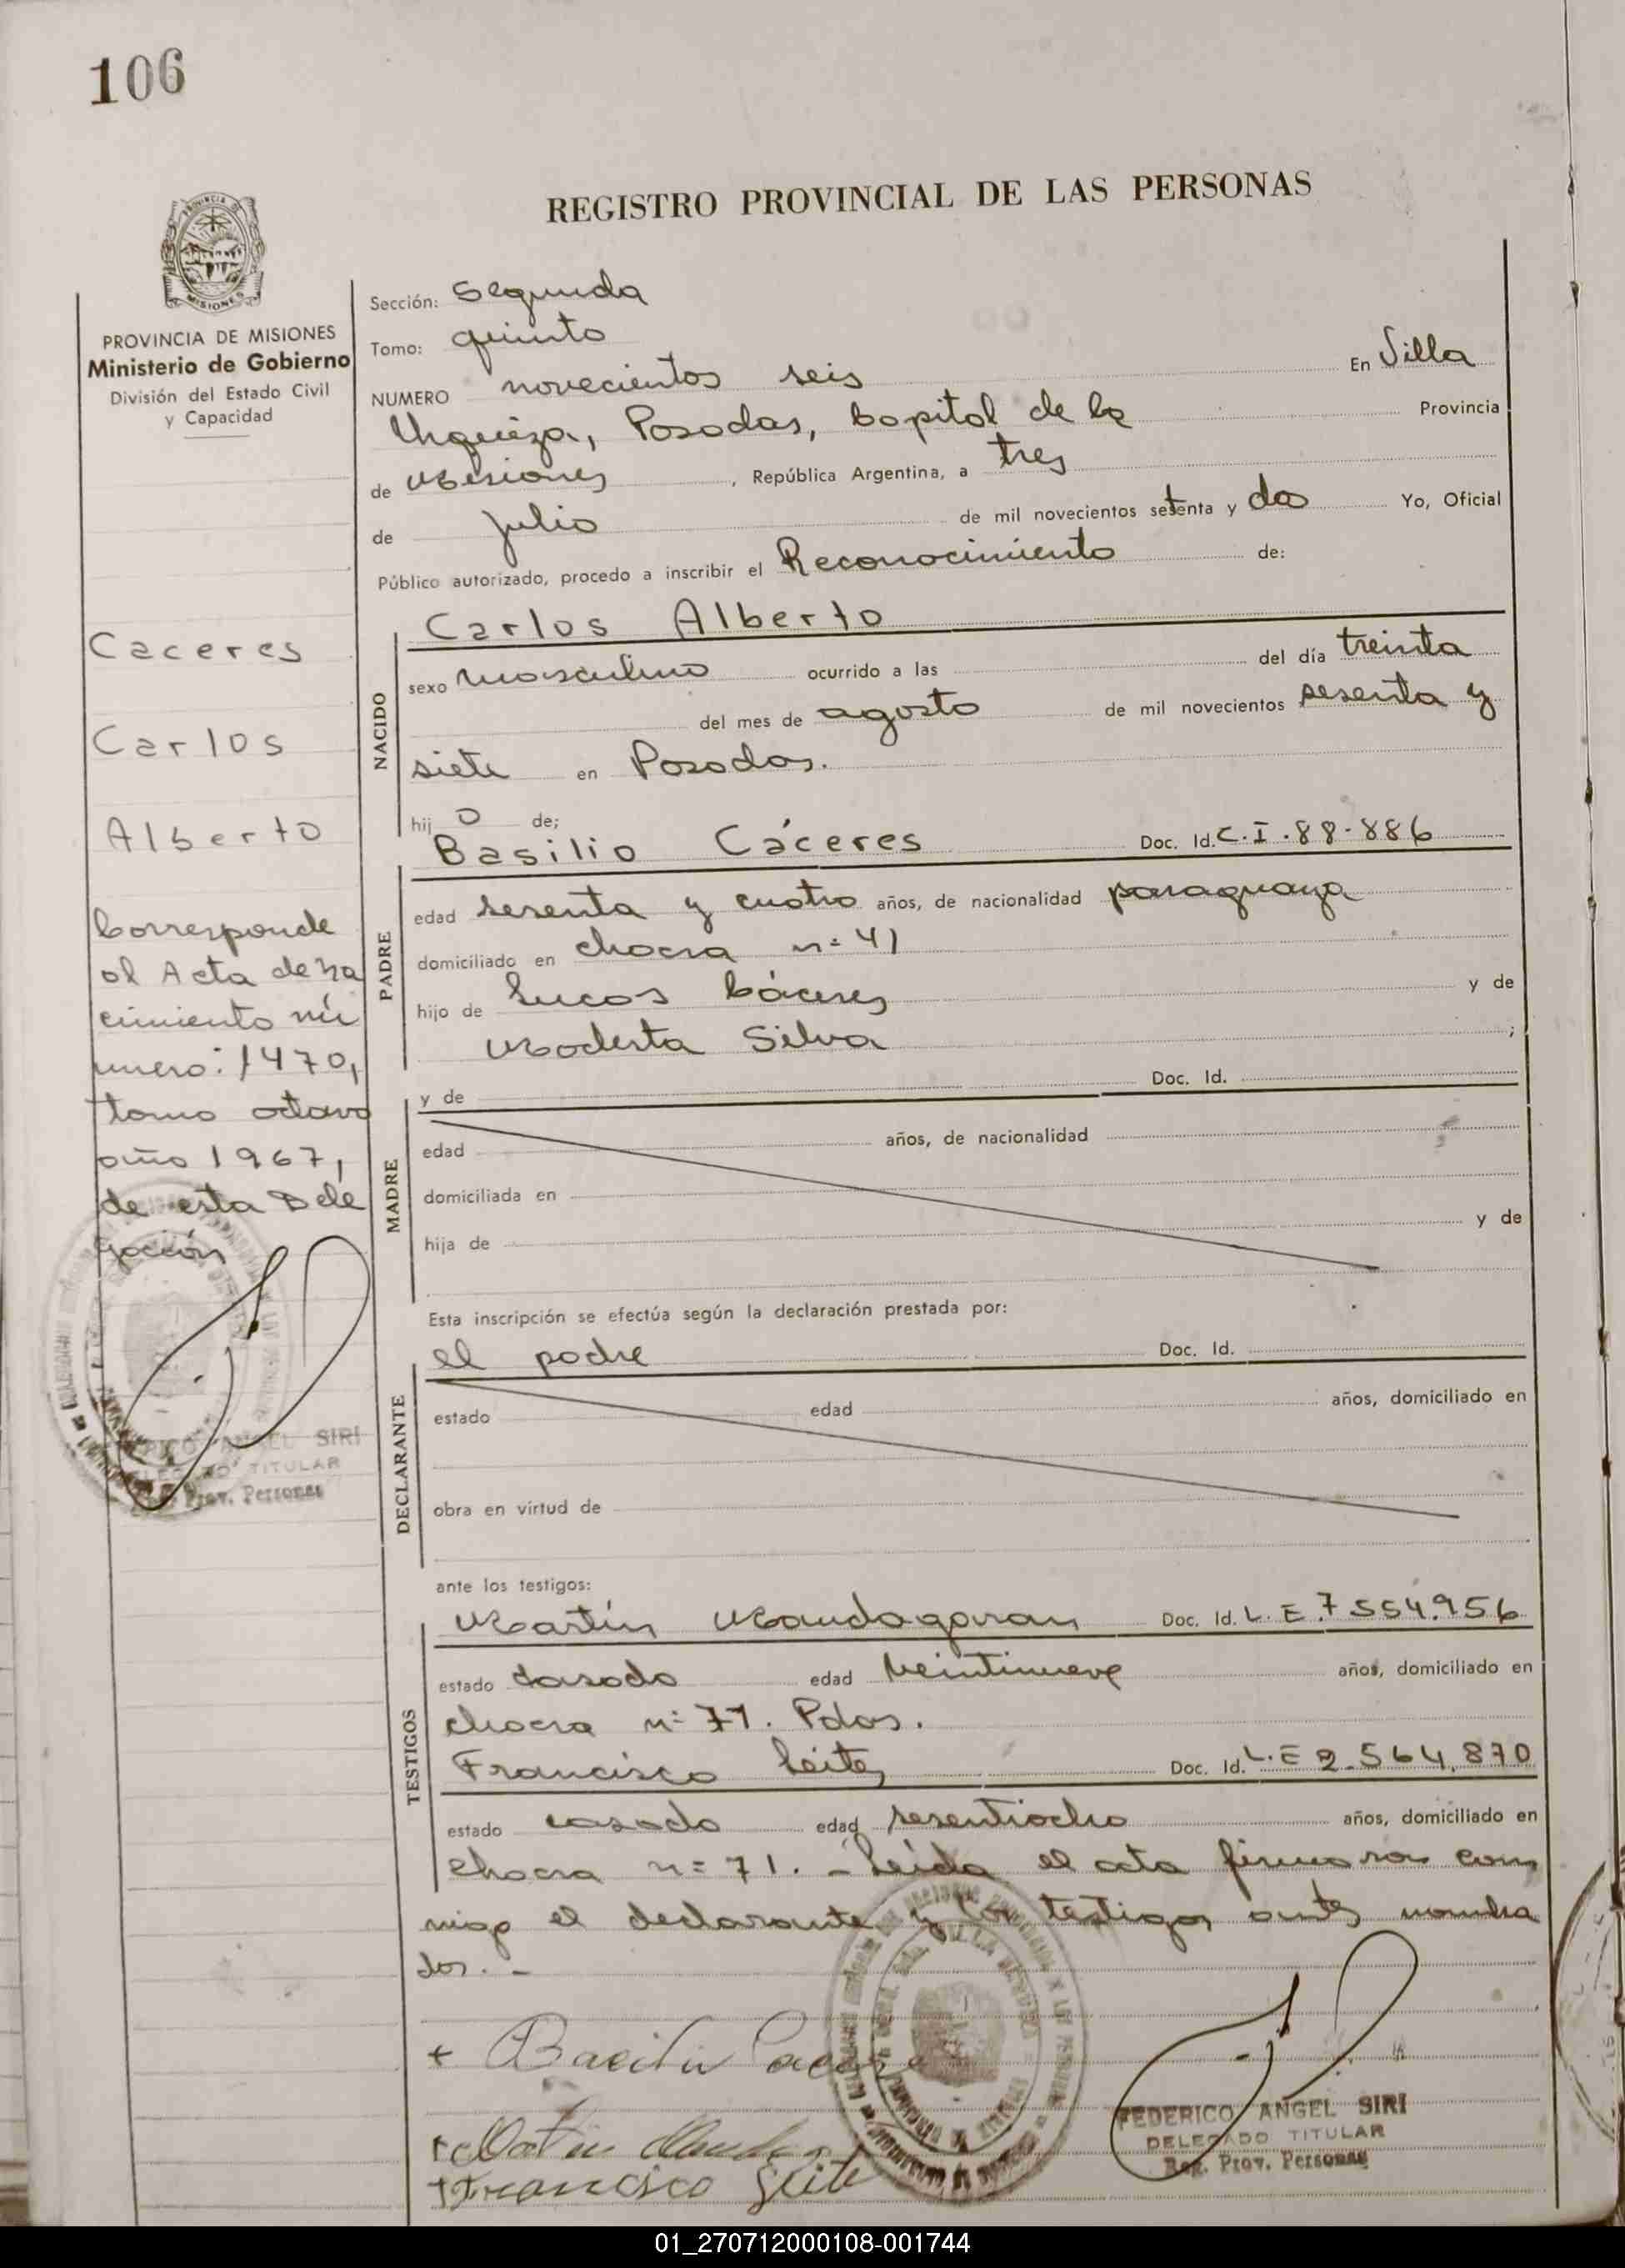 106
REGISTRO PROVINCIAL DE LAS PERSONAS
PROVINCIA DE MISIONES
Ministerio de Gobierno
División del Estado Civil
y Capacidad
Caceres
Carlos
Alberto
Corresponde
al Acta de na
cimiento nú
mero: 1470,
tomo octavo
año 1967,
de esta Dele
gación
ANGEL SIRI
TITULAR
Prov. Personas
Sección: Segunda
Tomo: quinto
NUMERO novecientos seis En Villa
Urquiza, Posadas, Capital de la Provincia
de Misiones, República Argentina, a tres
de julio de mil novecientos setenta y dos Yo, Oficial
Público autorizado, procedo a inscribir el Reconocimiento de:
NACIDO
Carlos Alberto
sexo masculino ocurrido a las del día treinta
del mes de agosto de mil novecientos sesenta y
siete en Posadas.
hij o de;
PADRE
Basilio Cáceres Doc. Id. C.I.88-886
edad sesenta y cuatro años, de nacionalidad paraguaya
domiciliado en chacra n= 41
hijo de Lucas Cáceres y de
Modesta Silva ;
MADRE
y de Doc. Id.
edad años, de nacionalidad
domiciliada en
hija de y de
Esta inscripción se efectúa según la declaración prestada por:
DECLARANTE
el padre Doc. Id.
estado edad años, domiciliado en
obra en virtud de
ante los testigos:
TESTIGOS
Martín Mandagaran Doc. Id. L.E.7554.956
estado casado edad veintinueve años, domiciliado en
chacra n= 71. Pdas.
Francisco Leites Doc. Id. L.E 2.564.870
estado casado edad sesentiocho años, domiciliado en
chacra n= 71. - Leída el acta firmaron con
migo el declarante y los testigos antes nombra
dos. -
+ Bacilio
+ Martin
+ Francisco Leite
FEDERICO ANGEL SIRI
DELEGADO TITULAR
Reg. Prov. Personas
01_270712000108-001744